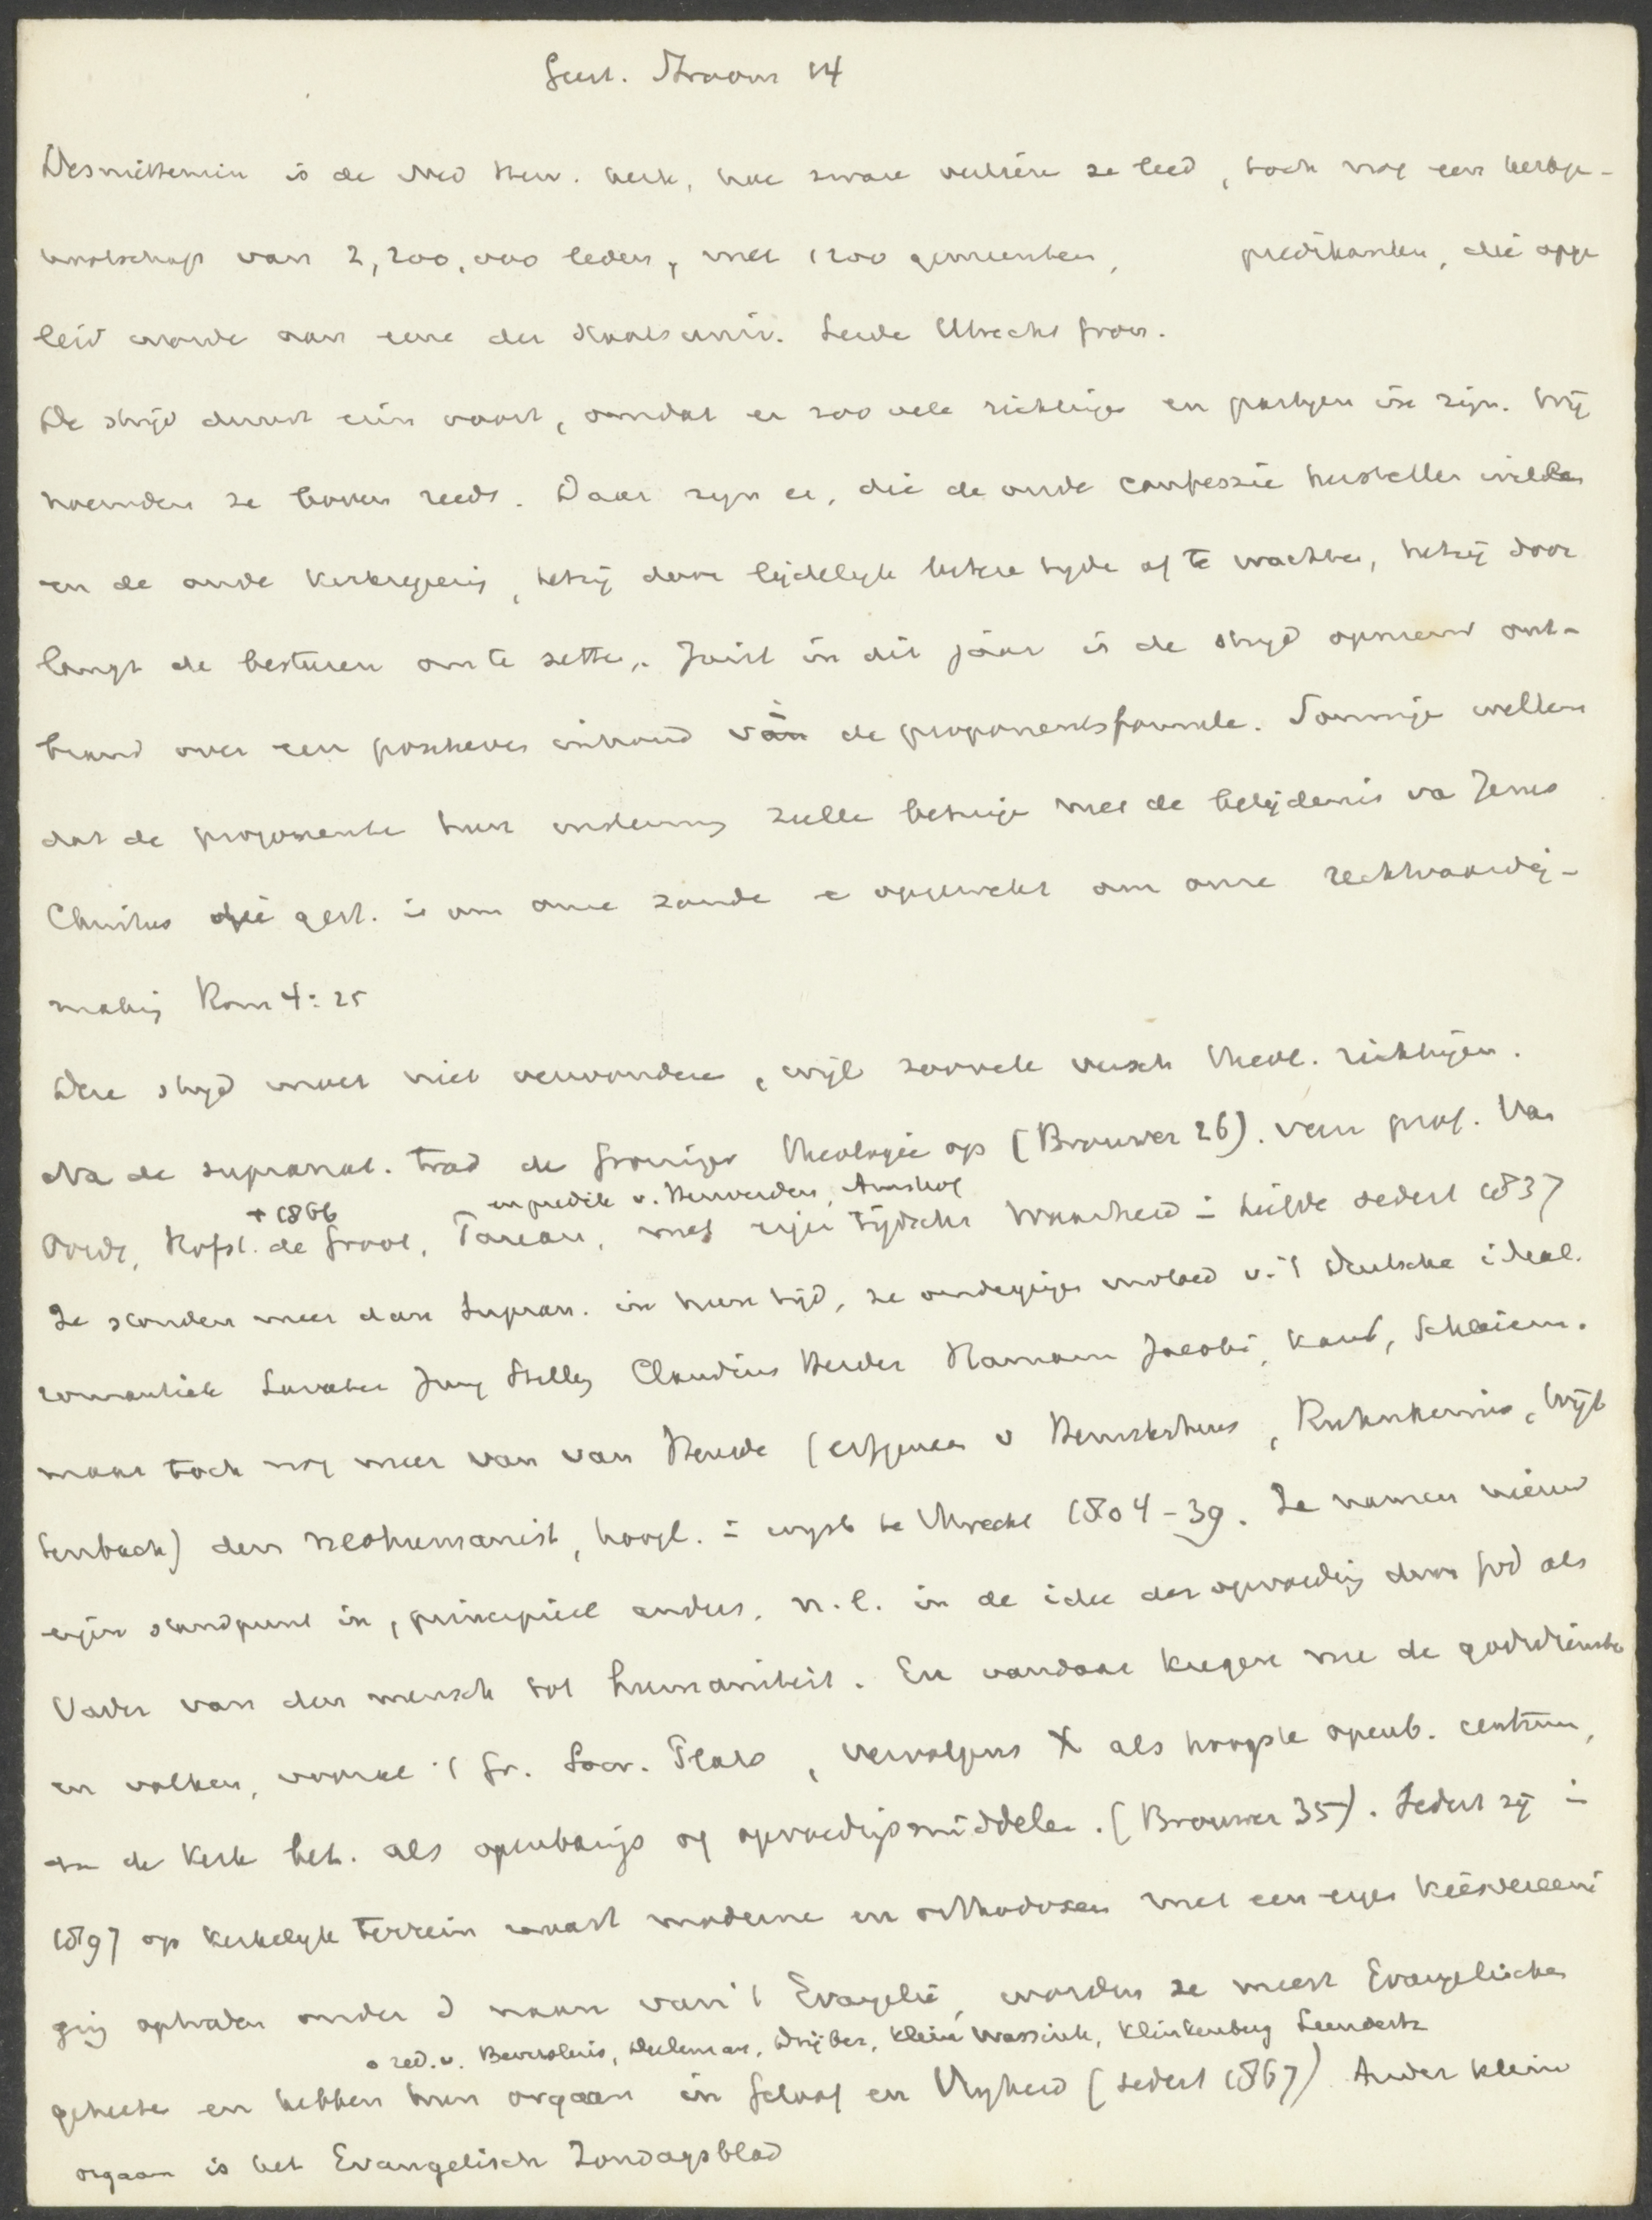 Geest. Stroom 14
Desniettemin is de Ned Herv. kerk, hoe zware verliezen ze leed, toch nog een kerkge-
nootschap van 2,200,000 leden, met 1200 gemeenten, predikanten, die opge
leid worde aan eene der Staatsuniv. Leide Utrecht Gron.
De strijd duurt erin voort, omdat er zoo vele richtinge en partijen in zijn. Wij
noemden ze boven reeds. Daar zijn er, die de oude confessie herstellen willen
en de oude kerkregeering, hetzij door lijdelijk betere tijde af te wachten, hetzij door
langz de besturen om te zetten. Juist in dit jaar is de strijd opnieuw ont-
brand over een positieven inhoud van de proponentsformule. Sommige wilden
dat de proponente hun instemming zulle betuige met de belijdenis va Jezus
Christus die gest. is om onze zonde e opgewekt om onze rechtvaardig-
making Rom 4:25
Deze strijd moet niet verwonderen, wijl zoovele versch theol. richtingen.
Na de supranat. trad de Groninger Theologie op (Brouwer 26). van prof. Van
+ 1866 en predik v. Herwerden, Amshof
Oordt, Hofst. de Groot, Pareau, met eigen tijdschr Waarheid in Liefde sedert 1837
Ze stonden meer dan Supran. in hun tijd, ze ondergingen invloed v. 't Duitsche ideal.
romantiek Lavater Jung Stilling Claudius Herder Hamann Jacobi, Kant, Schleierm.
maar toch nog meer van van Heusde (erfgenaam v Hemsterhuis, Ruhnkenius, Wijt
tenbach) den neohumanist, hoogl. in wijsb te Utrecht 1804-39. Ze namen nieuw
eigen standpunt in, principieel anders, n.l. in de idee der opvoeding door God als
Vader van den mensch tot humaniteit. En vandaar kregen nu de godsdiensten
en volken, vooral 't Gr. Socr. Plato, vervolgens X als hoogste openb. centrum,
en de Kerk bet. als openbarings of opvoedingsmiddelen. (Brouwer 35). Sedert zij in
1897 op kerkelijk terrein naast moderne en orthodoxen met een eigen kiesvereeni
ging optraden onder d naam van 't Evangelie, worden ze meest Evangelischen
o red. v. Beversluis, Deeleman, Drijber, Klein Wassink, Klinkenberg Leendertz
geheeten en hebben hun orgaan in Geloof en Vrijheid (sedert 1867) Ander klein
orgaan is het Evangelisch Zondagsblad